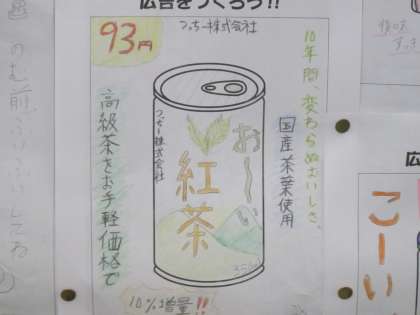 広告をつくろう!!
93円
つっちー株式会社
10年間、変わらぬおいしさ。
国産茶葉使用
高級茶をお手軽価格で
つっちー株式会社
お〜い
紅茶
10%増量!!
のむ前に
こーい